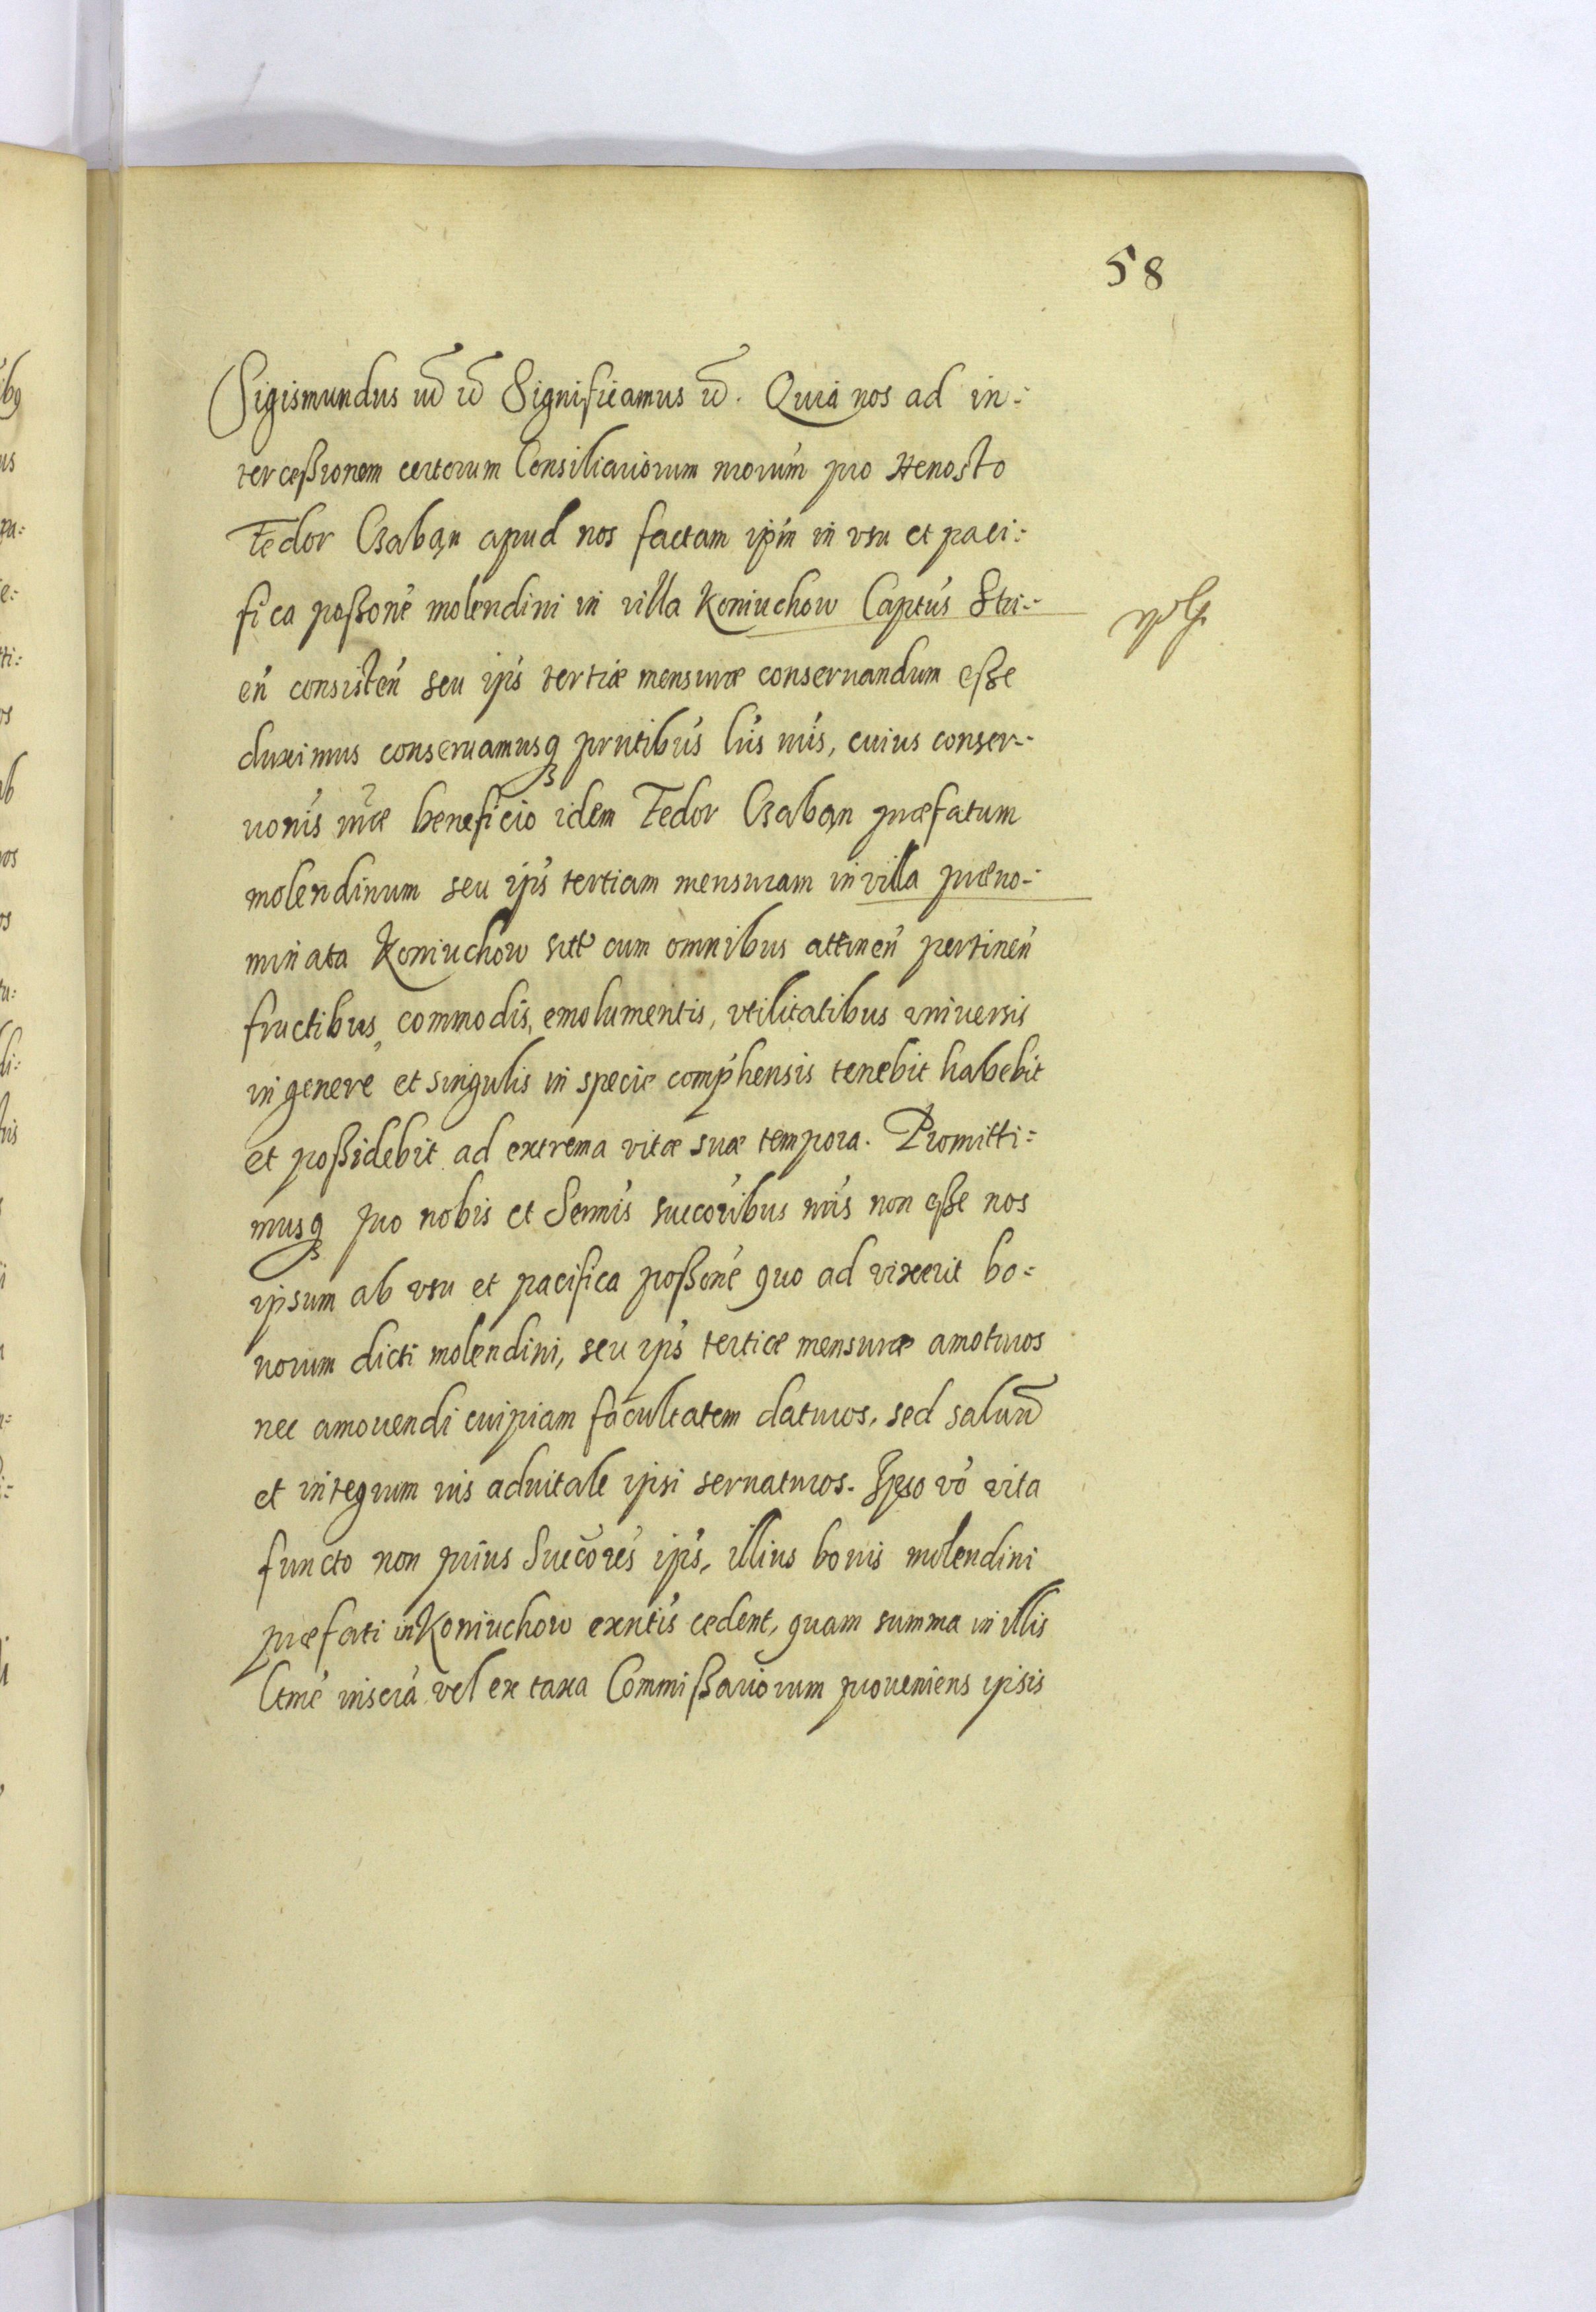 58
Sigismundus Significamus Quia nos ad in-
tercessionem certorum Consiliariorum nrorum pro Honesto
Fedor Czaban apud nos factam ipm in vsu et paci:
fica possone molendini in villa Koniuchow Captus Stri-
en consisten seu ips tertiæ mensuræ conseruandum esse
duximus conseruamusq prntibus lris nris, cuius conser-
uonis nræ beneficio idem Fedor Czaban præfatum
molendinum seu ips tertiam mensuram in villa præno-
minata Koniuchow sitt cum omnibus attinen pertinen
fructibus, commodis, emolumentis, vtilitatibus vniuersis
in genere et singulis in specie comphensis tenebit habebit
et possidebit ad extrema vitæ suæ tempora. Promitti=
musq pro nobis et Sermis succoribus nris non esse nos
ipsum ab vsu et pacifica possone quo ad vixerit bo=
norum dicti molendini, seu ips tertiæ mensuræ amoturos
nec amouendi cuipiam facultatem daturos, sed saluu
et integrum ius aduitale ipsi seruaturos. Ipso vo vita
functo non prius Succores ips, illius bonis molendini
præfati in Koniuchow exntis cedent, quam summa in illis
ltme inscra vel ex taxa Commissariorum proueniens ipsis